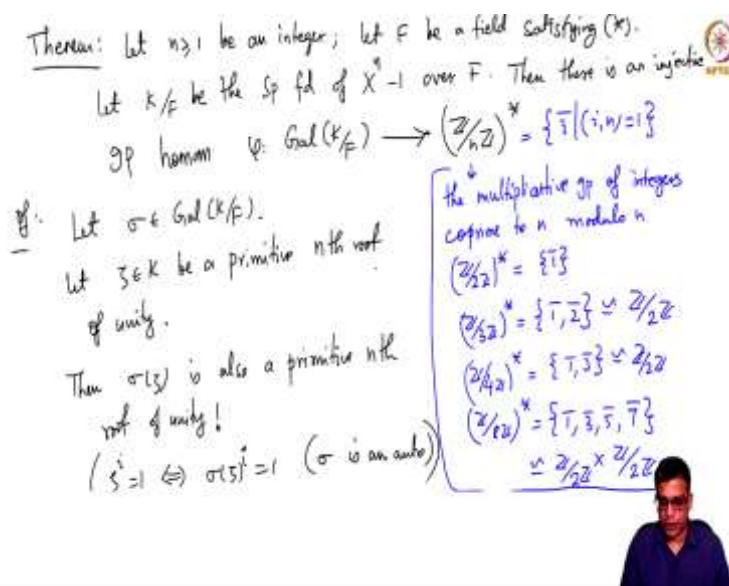 Theorem: Let n≥1 be an integer; let F be a field satisfying (*).
Let K/F be the sp fd of X^n -1 over F. Then there is an injective
gp homom φ: Gal(K/F) → (Z/nZ)^* = {ī | (i,n)=1}
Pf: Let σ ∈ Gal(K/F).
Let ζ ∈ K be a primitive nth root
of unity.
Then σ(ζ) is also a primitive nth
root of unity!
(ζ^i=1 ⇔ σ(ζ)^i=1 (σ is an auto))
↓
the multiplicative gp of integers
coprime to n modulo n
(Z/2Z)^* = {1̄}
(Z/3Z)^* = {1̄, 2̄} ≃ Z/2Z
(Z/4Z)^* = {1̄, 3̄} ≃ Z/2Z
(Z/8Z)^* = {1̄, 3̄, 5̄, 7̄}
≃ Z/2Z × Z/2Z
NPTEL